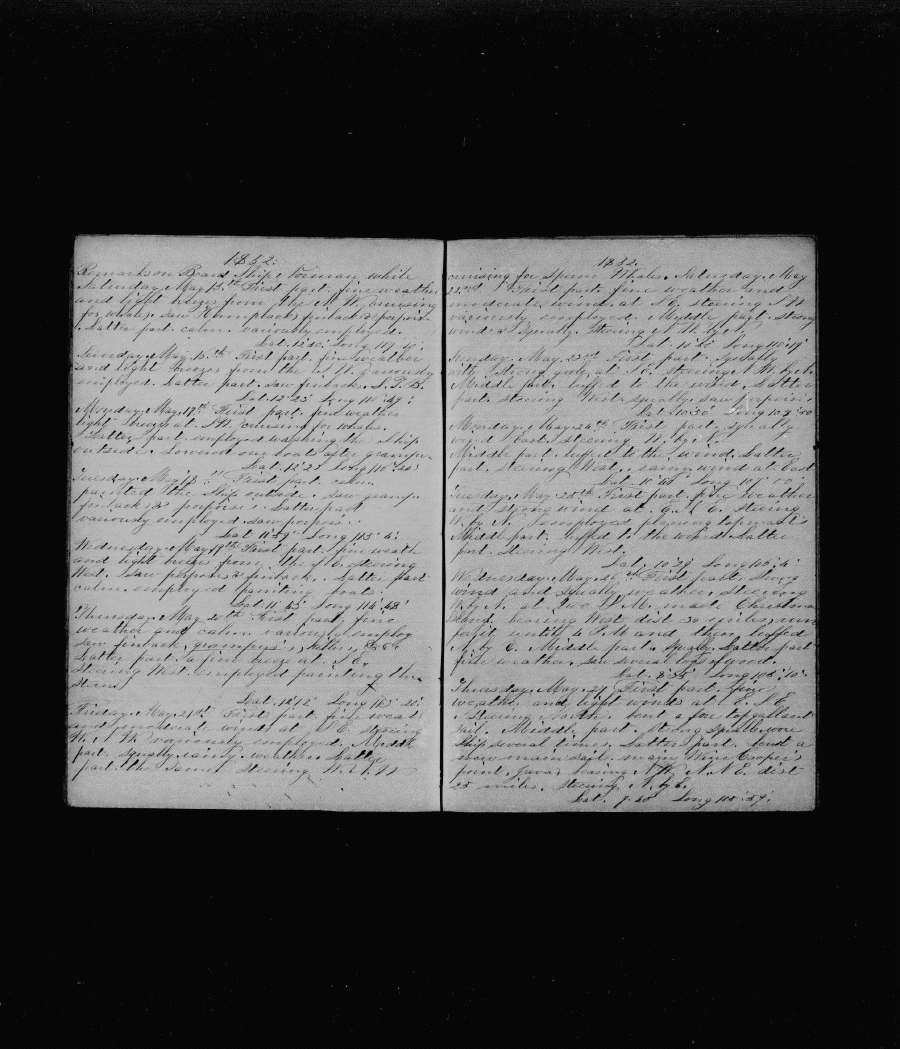 1852.
Remarks on Board Ship Norman while
Saturday. May 15.th First part. fine weather
and light breezes from the N. W. cruising
for whales. saw Humpbacks finbacks & porpois.
Latter part calm variously employed.
Lat. 12°50' Long 117
Sunday. May 16.th First part. fine weather
and light breezes from the S. W. variously
employed. Latter part. saw finbacks.
Lat. 12°23' Long
Monday. May. 17th First part. fine weather
light breeze at S W. cruising for whales.
Latter part employed washing the Ship
outside. Lowered our boats after grampus.
Lat. 12°23' Long 116°
Tuesday. May 18 First part. calm.
painted the ship outside. saw gramp.
finbacks & porporis. Latter part
variously employed. saw porpois.
Lat 11°59' Long
Wednesday. May 19th First part. fine weath
and light breeze from the steering
West. saw porpois & finback. Latter part
calm. employed painting boats.
Lat 11°55' Long 114°58'
Thursday. May 20th First part. fine
weather and calm. variously employ
saw finback, grampus, killers,
Latter part. a fine breeze at S E.
steering West. employed painting the
Stern
Lat. 12°12' Long 113°20'
Friday. May. 21st First part. fine weat
and moderate winds at S E steering
W. N. W. variously employed. Middle
part. Squally rainy weather. Latter
part. the same. Steering W. N. W
1852.
cruising for Sperm Whales. Saturday. May
22.nd First part. fine weather and
moderate wind at S E steering N W
variously employed. Myddle part. strong
wind & Squaly. Steering N W. by N.
Lat. Long 110°19'
Sunday. May. 23rd First part. Squally
with strong gales at S E. steering N W. by N.
Middle part. luffed to the wind. Latter
part. steering West. squally. saw porpois.
Lat. 10°30' Long 109°50'
Monday. May 24th First part. squally
wind East. steering W. by N.
Middle part. luffed to the wind. Latter
part. steering West. rainy. wind at East
Lat. Long
Tuesday. May. 25th First part. fine weather
and strong wind at E. S. E. steering
W. by N. employed
Middle part. luffed to the wind. Latter
part. Steering West.
Lat. 10°29' Long
Wednesday. May. 26th First part. strong
wind and Squally weather. steering
W. by N. at two P. M. made Christmas
Island. bearing West dist 30 miles. run
for it until 4 P M and then luffed
N. by E. Middle part. Squaly. Latter part
fine weather. saw several logs of wood.
Lat. 8°35' Long 105°10'
Thursday. May. 27 First part. fine
weather and light winds at E. S E.
Steering North. bent a fore topgallant
sail. Middle part. Strong Squalls. wore
ship several times. Latter part. bent a
new main sail. made Wine Coopers
point. Java. bearing N. N. E. dist
25 miles. steering N. by E.
Lat. Long 105°59'